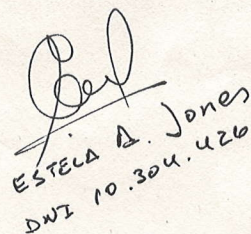 ESTELA A. Jones
DNI 10.304.426